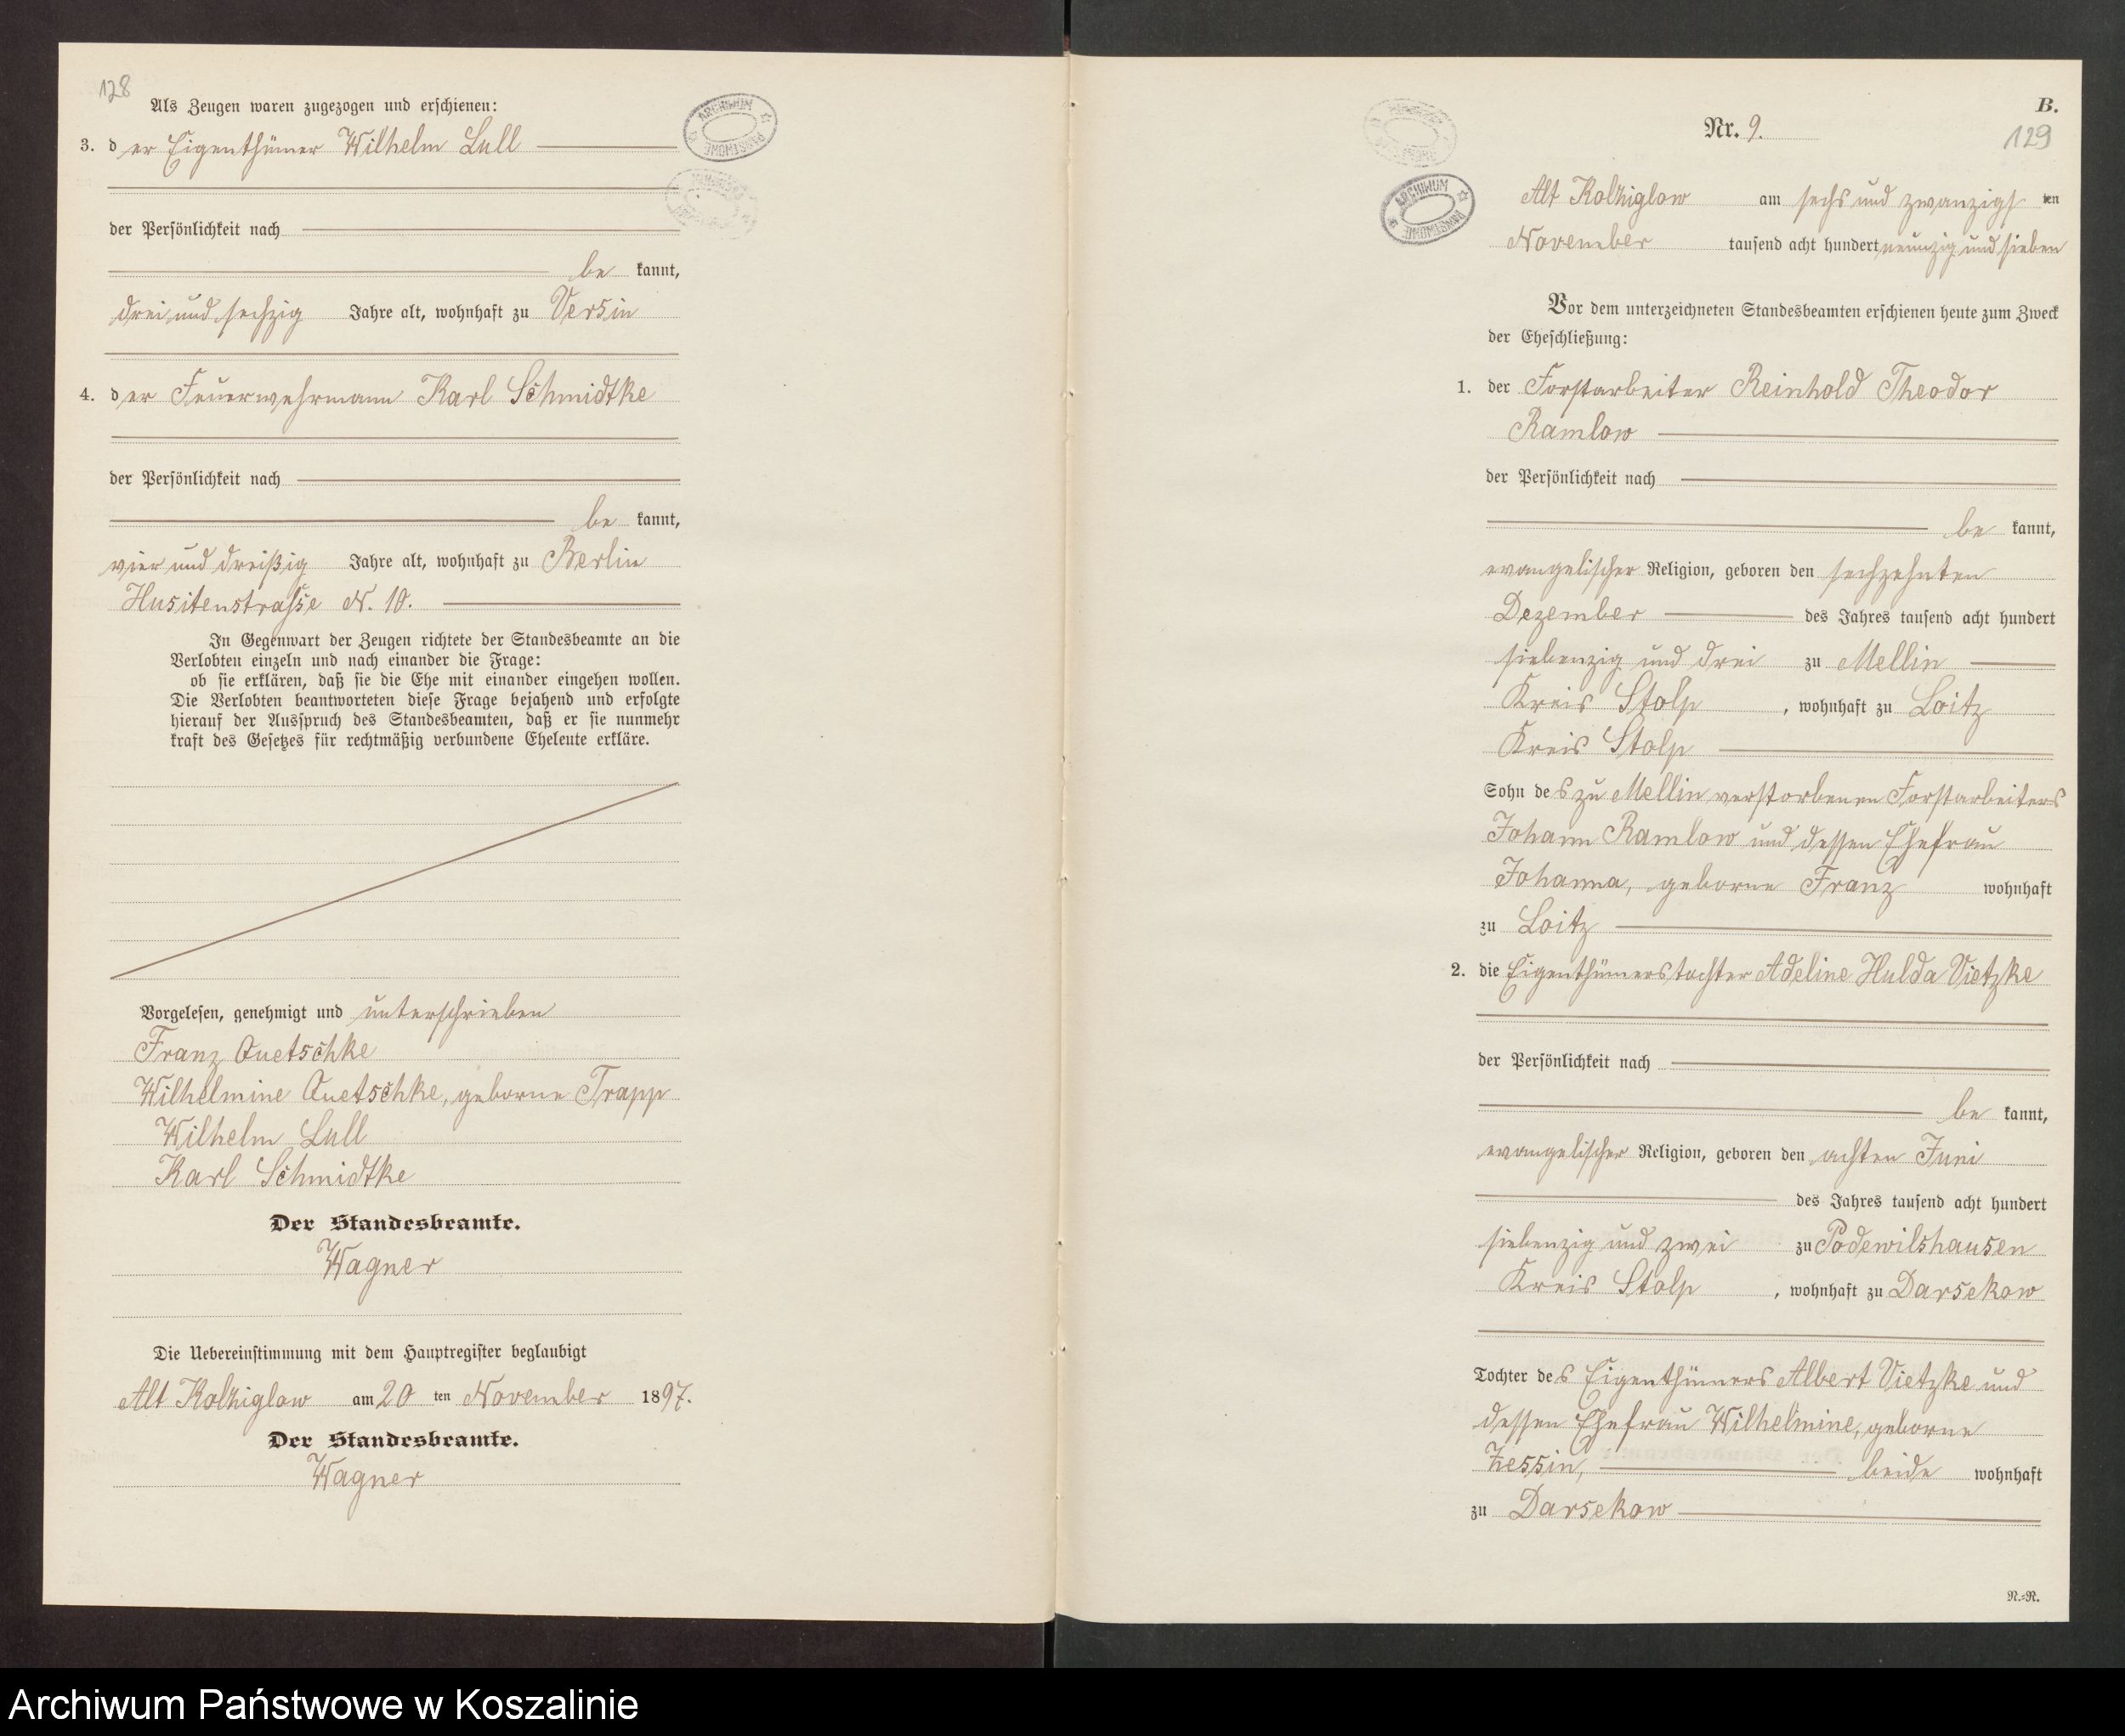 128
Als Zeugen waren zugezogen und erschienen:
3. der Eigenthümer Wilhelm Lull
der Persönlichkeit nach
be kannt,
drei und sechzig Jahre alt, wohnhaft zu Versin
4. der Feuerwehrmann Karl Schmidtke
der Persönlichkeit nach
be kannt,
vier und dreißig Jahre alt, wohnhaft zu Berlin
Husitenstrasse N. 10.
In Gegenwart der Zeugen richtete der Standesbeamte an die
Verlobten einzeln und nach einander die Frage:
ob sie erklären, daß sie die Ehe mit einander eingehen wollen.
Die Verlobten beantworteten diese Frage bejahend und erfolgte
hierauf der Ausspruch des Standesbeamten, daß er sie nunmehr
kraft des Gesetzes für rechtmäßig verbundene Eheleute erkläre.
Vorgelesen, genehmigt und unterschrieben
Franz Quetschke
Wilhelmine Quetschke, geborne Trapp
Wilhelm Lull
Karl Schmidtke
Der Standesbeamte.
Wagner
Die Uebereinstimmung mit dem Hauptregister beglaubigt
Alt Kolziglow am 20 ten November 1897.
Der Standesbeamte.
Wagner
ARCHIWUM PAŃSTWOWE
B.
Nr. 9.
129
ARCHIWUM PAŃSTWOWE
Alt Kolziglow am sechs und zwanzigsten
November tausend acht hundert neunzig und sieben
Vor dem unterzeichneten Standesbeamten erschienen heute zum Zweck
der Eheschließung:
1. der Forstarbeiter Reinhold Theodor
Ramlow
der Persönlichkeit nach
be kannt,
evangelischer Religion, geboren den sechzehnten
Dezember des Jahres tausend acht hundert
siebenzig und drei zu Mellin
Kreis Stolp, wohnhaft zu Loitz
Kreis Stolp
Sohn des zu Mellin verstorbenen Forstarbeiters
Johann Ramlow und dessen Ehefrau
Johanna, geborne Franz wohnhaft
zu Loitz
2. die Eigenthümerstochter Adeline Hulda Vietzke
der Persönlichkeit nach
be kannt,
evangelischer Religion, geboren den achten Juni
des Jahres tausend acht hundert
siebenzig und zwei zu Podewilshausen
Kreis Stolp, wohnhaft zu Darsekow
Tochter des Eigenthümers Albert Vietzke und
dessen Ehefrau Wilhelmine, geborne
Zessin, beide wohnhaft
zu Darsekow
N.=R.
Archiwum Państwowe w Koszalinie